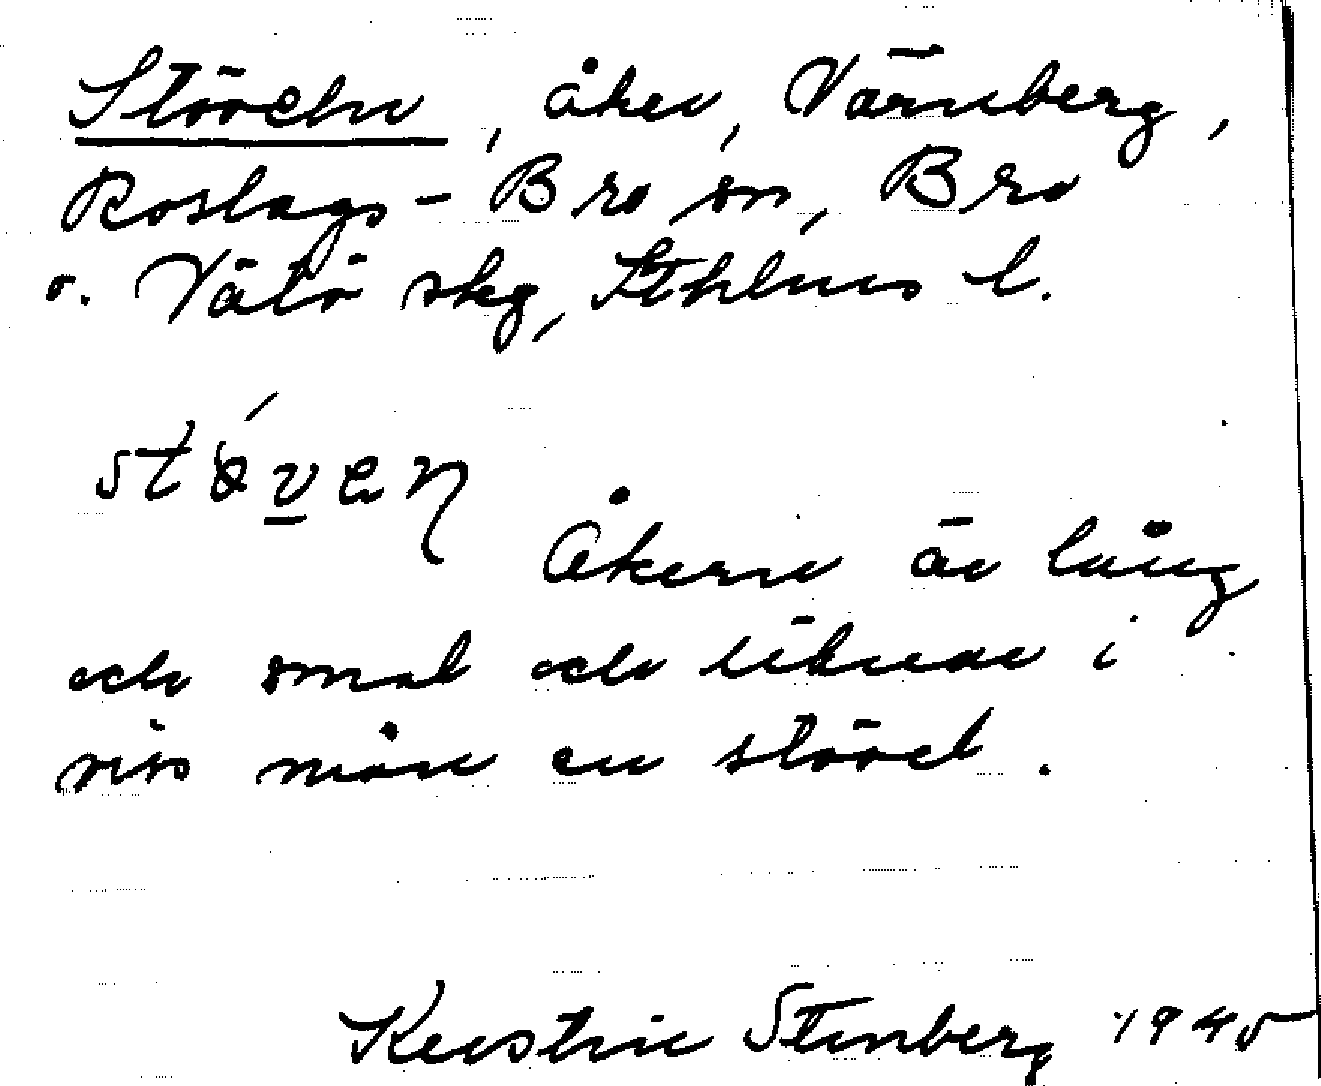 Stöveln, åker, Värnberg,
Roslags-Bro sn, Bro
o. Vätö skg, Sthlms l.
Åkern är lång
och smal och liknar i
viss mån en stövel.
Kerstin Stenberg 1945